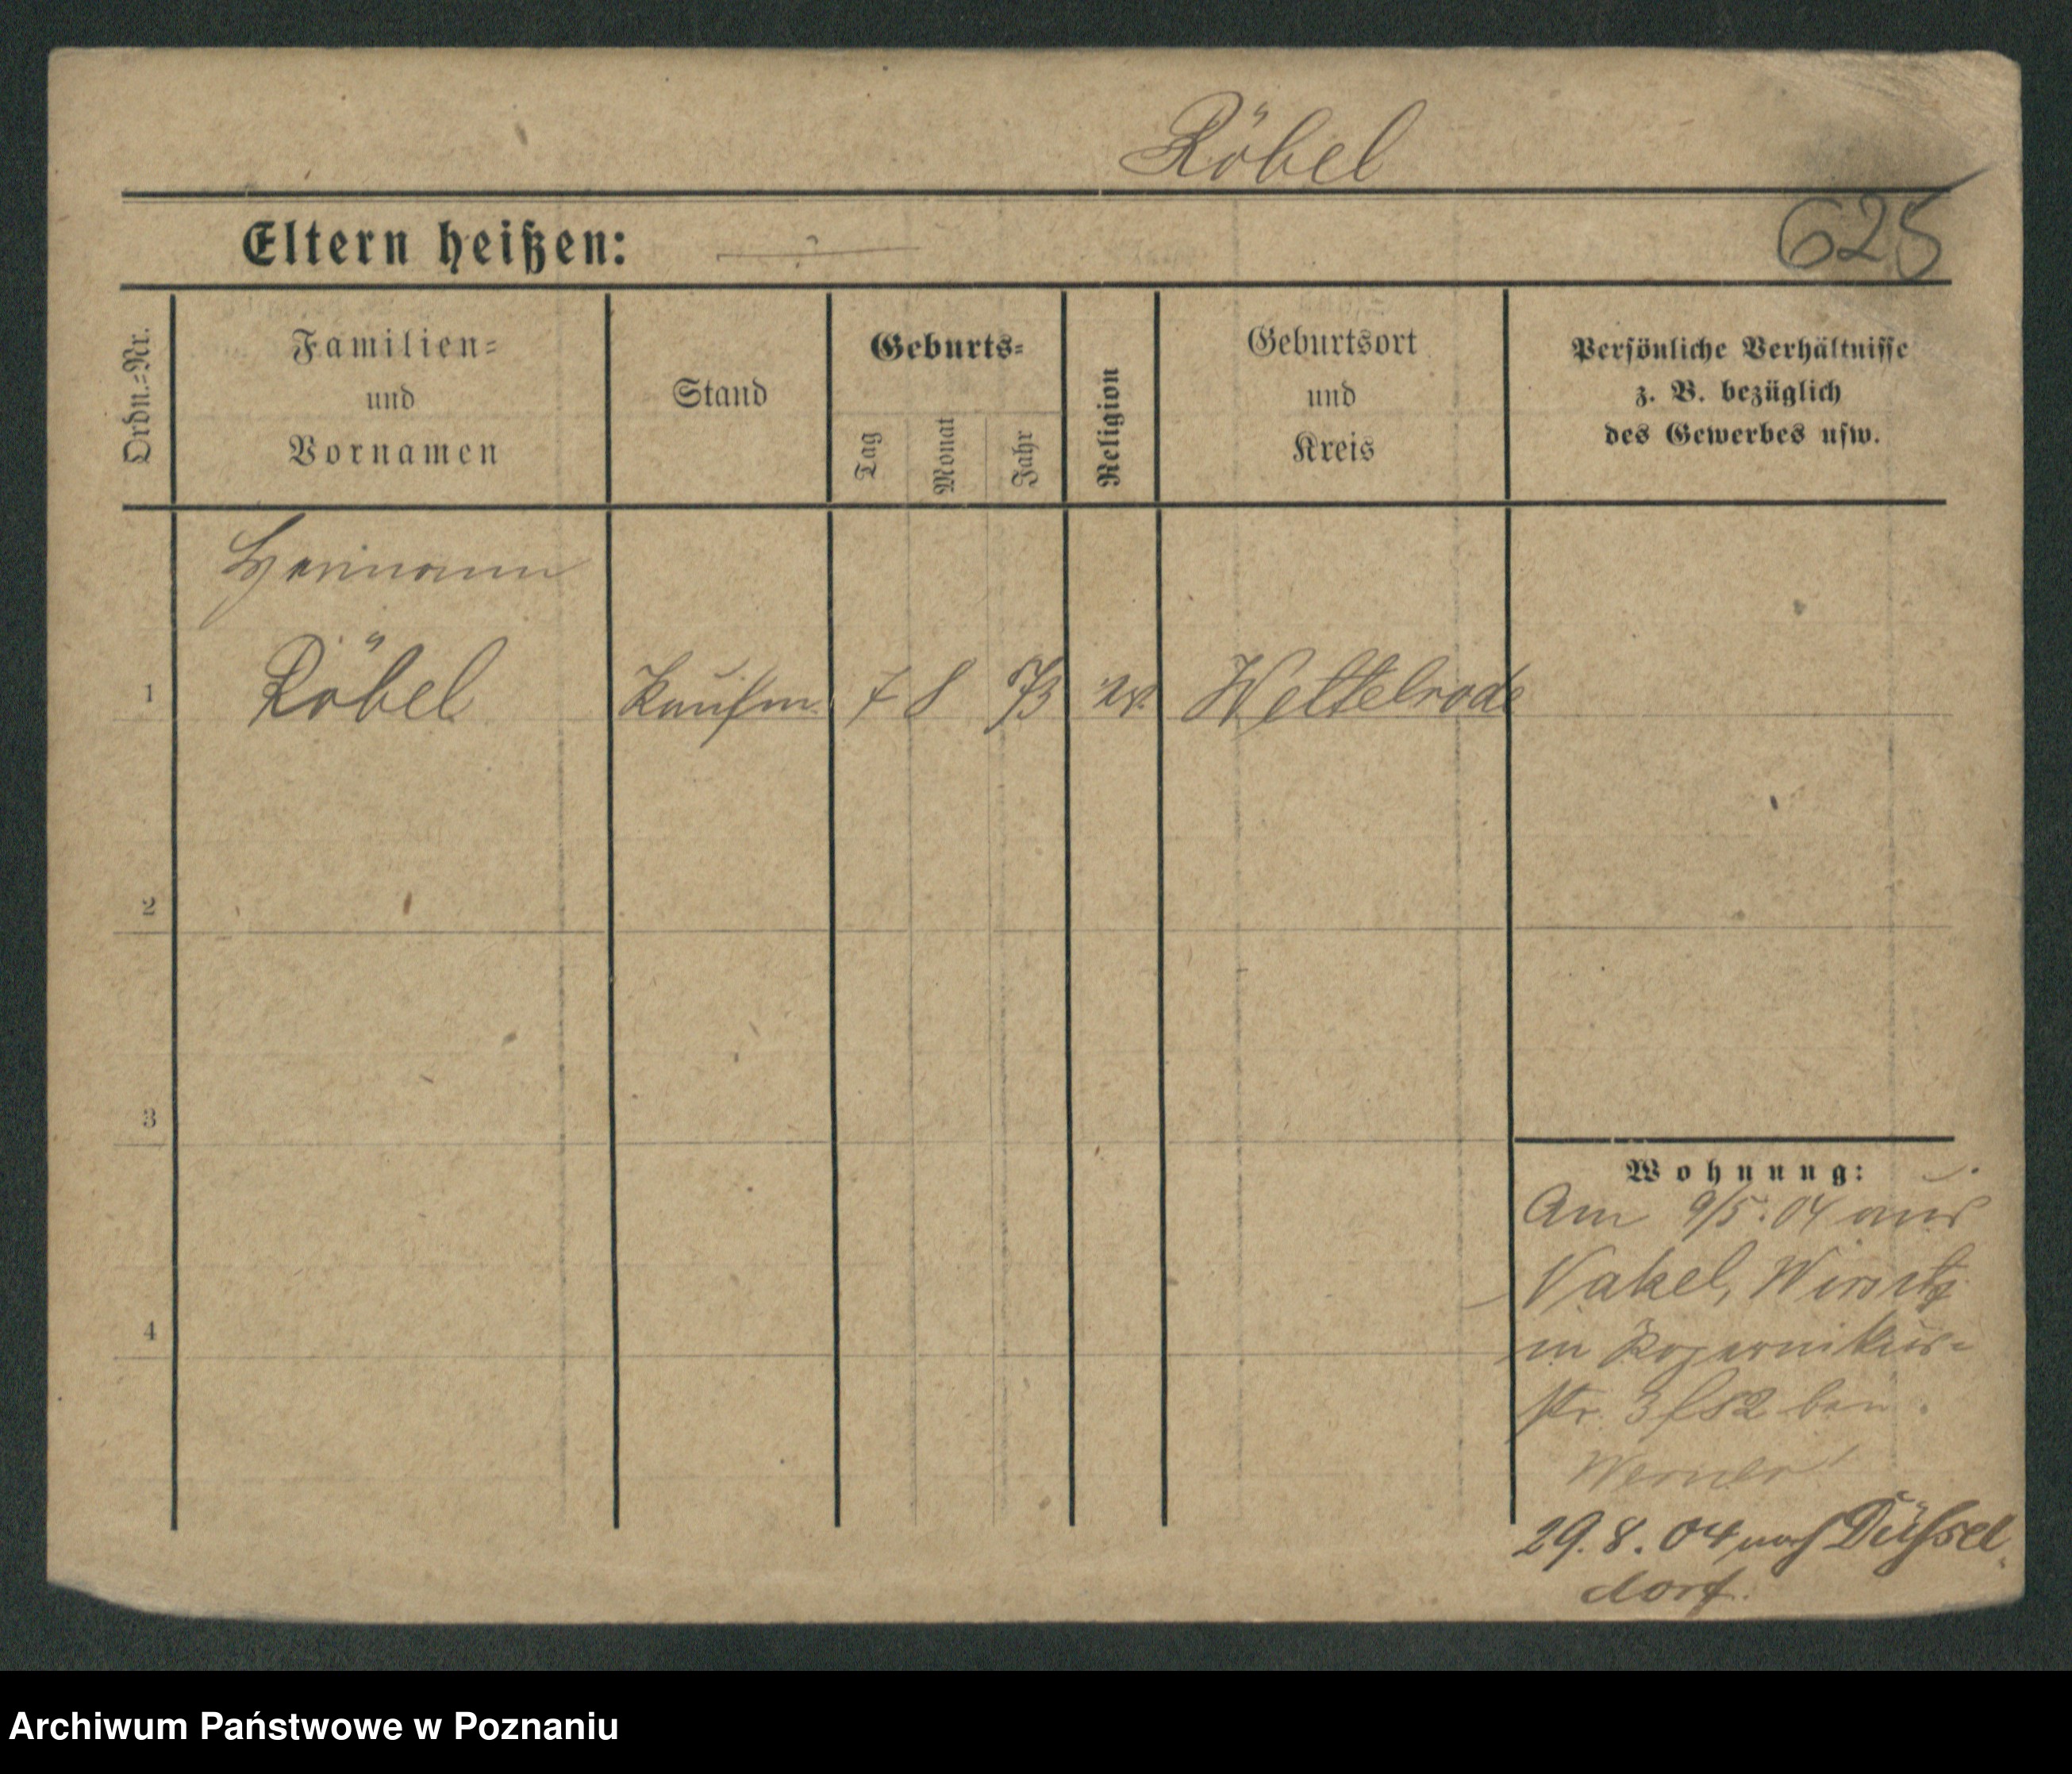 Röbel
Eltern heißen: ?
625
Ordn.=Nr.
Familien=
und
Vornamen
Stand
Geburts=
Tag
Monat
Jahr
Religion
Geburtsort
und
Kreis
Persönliche Verhältnisse
z. B. bezüglich
des Gewerbes usw.
Hermann
1 Röbel Kaufm. 7 8 73 ev. Wettelrode
2
3
4
Wohnung:
Am 9/5. 04 aus
Nakel, Wirsitz
in Kopernikus-
str. 3 bei
Werner
29. 8. 04 nach Düssel
dorf.
Archiwum Państwowe w Poznaniu